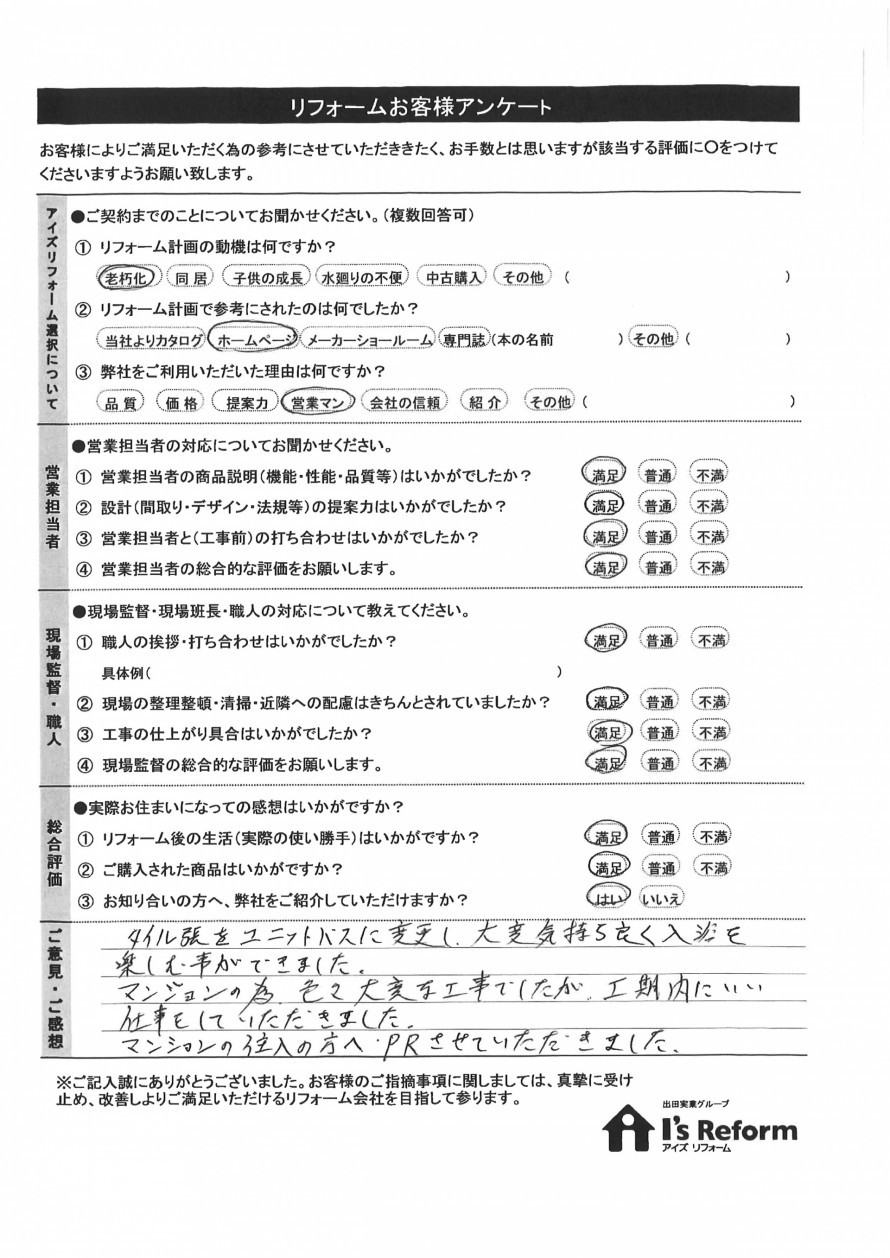 リフォームお客様アンケート
お客様によりご満足いただく為の参考にさせていただききたく、お手数とは思いますが該当する評価に〇をつけて
くださいますようお願い致します。
アイズリフォーム選択について
●ご契約までのことについてお聞かせください。(複数回答可)
① リフォーム計画の動機は何ですか?
老朽化 同居 子供の成長 水廻りの不便 中古購入 その他 ( )
② リフォーム計画で参考にされたのは何でしたか?
当社よりカタログ ホームページ メーカーショールーム 専門誌(本の名前 ) その他 ( )
③ 弊社をご利用いただいた理由は何ですか?
品質 価格 提案力 営業マン 会社の信頼 紹介 その他 ( )
営業担当者
●営業担当者の対応についてお聞かせください。
① 営業担当者の商品説明(機能・性能・品質等)はいかがでしたか? 満足 普通 不満
② 設計(間取り・デザイン・法規等)の提案力はいかがでしたか? 満足 普通 不満
③ 営業担当者と(工事前)の打ち合わせはいかがでしたか? 満足 普通 不満
④ 営業担当者の総合的な評価をお願いします。 満足 普通 不満
現場監督・職人
●現場監督・現場班長・職人の対応について教えてください。
① 職人の挨拶・打ち合わせはいかがでしたか? 満足 普通 不満
具体例( )
② 現場の整理整頓・清掃・近隣への配慮はきちんとされていましたか? 満足 普通 不満
③ 工事の仕上がり具合はいかがでしたか? 満足 普通 不満
④ 現場監督の総合的な評価をお願いします。 満足 普通 不満
総合評価
●実際お住まいになっての感想はいかがですか?
① リフォーム後の生活(実際の使い勝手)はいかがですか? 満足 普通 不満
② ご購入された商品はいかがですか? 満足 普通 不満
③ お知り合いの方へ、弊社をご紹介していただけますか? はい いいえ
ご意見・ご感想
タイル張をユニットバスに変更し、大変気持ち良く入浴を
楽しむ事ができました。
マンションの為、色々大変な工事でしたが、工期内にいい
仕事をしていただきました。
マンションの住人の方へPRさせていただきました。
※ご記入誠にありがとうございました。お客様のご指摘事項に関しましては、真摯に受け
止め、改善しよりご満足いただけるリフォーム会社を目指して参ります。
出田実業グループ
I's Reform
アイズ リフォーム